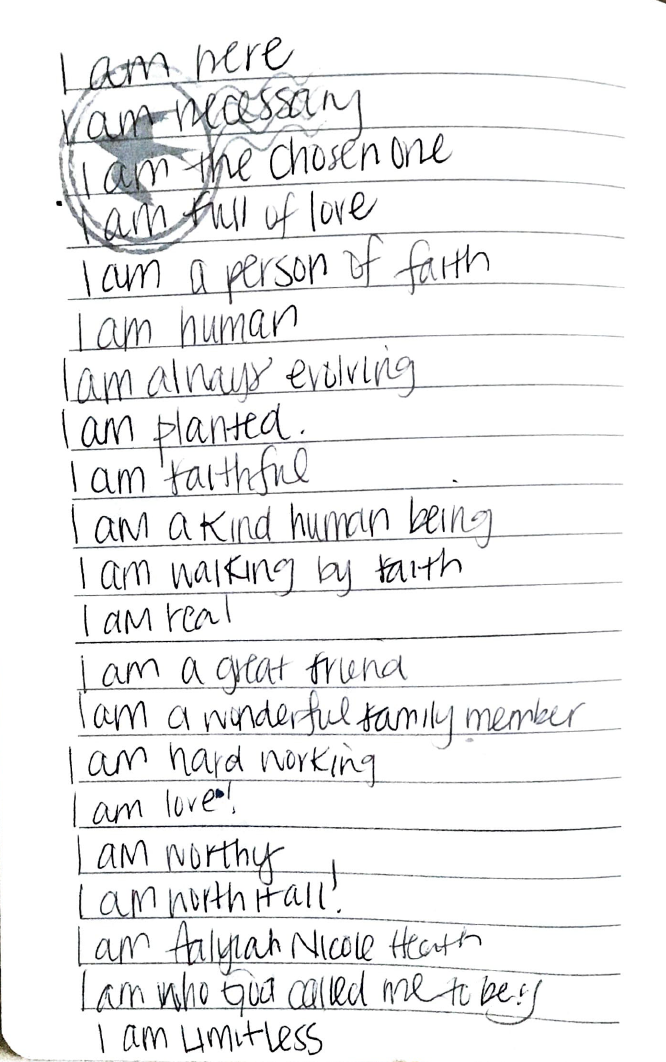 I am here
I am necessary
I am the chosen one
I am full of love
I am a person of faith
I am human
I am always evolving
I am planted.
I am faithful
I am a kind human being
I am walking by faith
I am real
I am a great friend
I am a wonderful family member
I am hard working
I am love!
I am worthy
I am worth it all!
I am Aalyiah Nicole Heath
I am who God called me to be!
I am Limitless